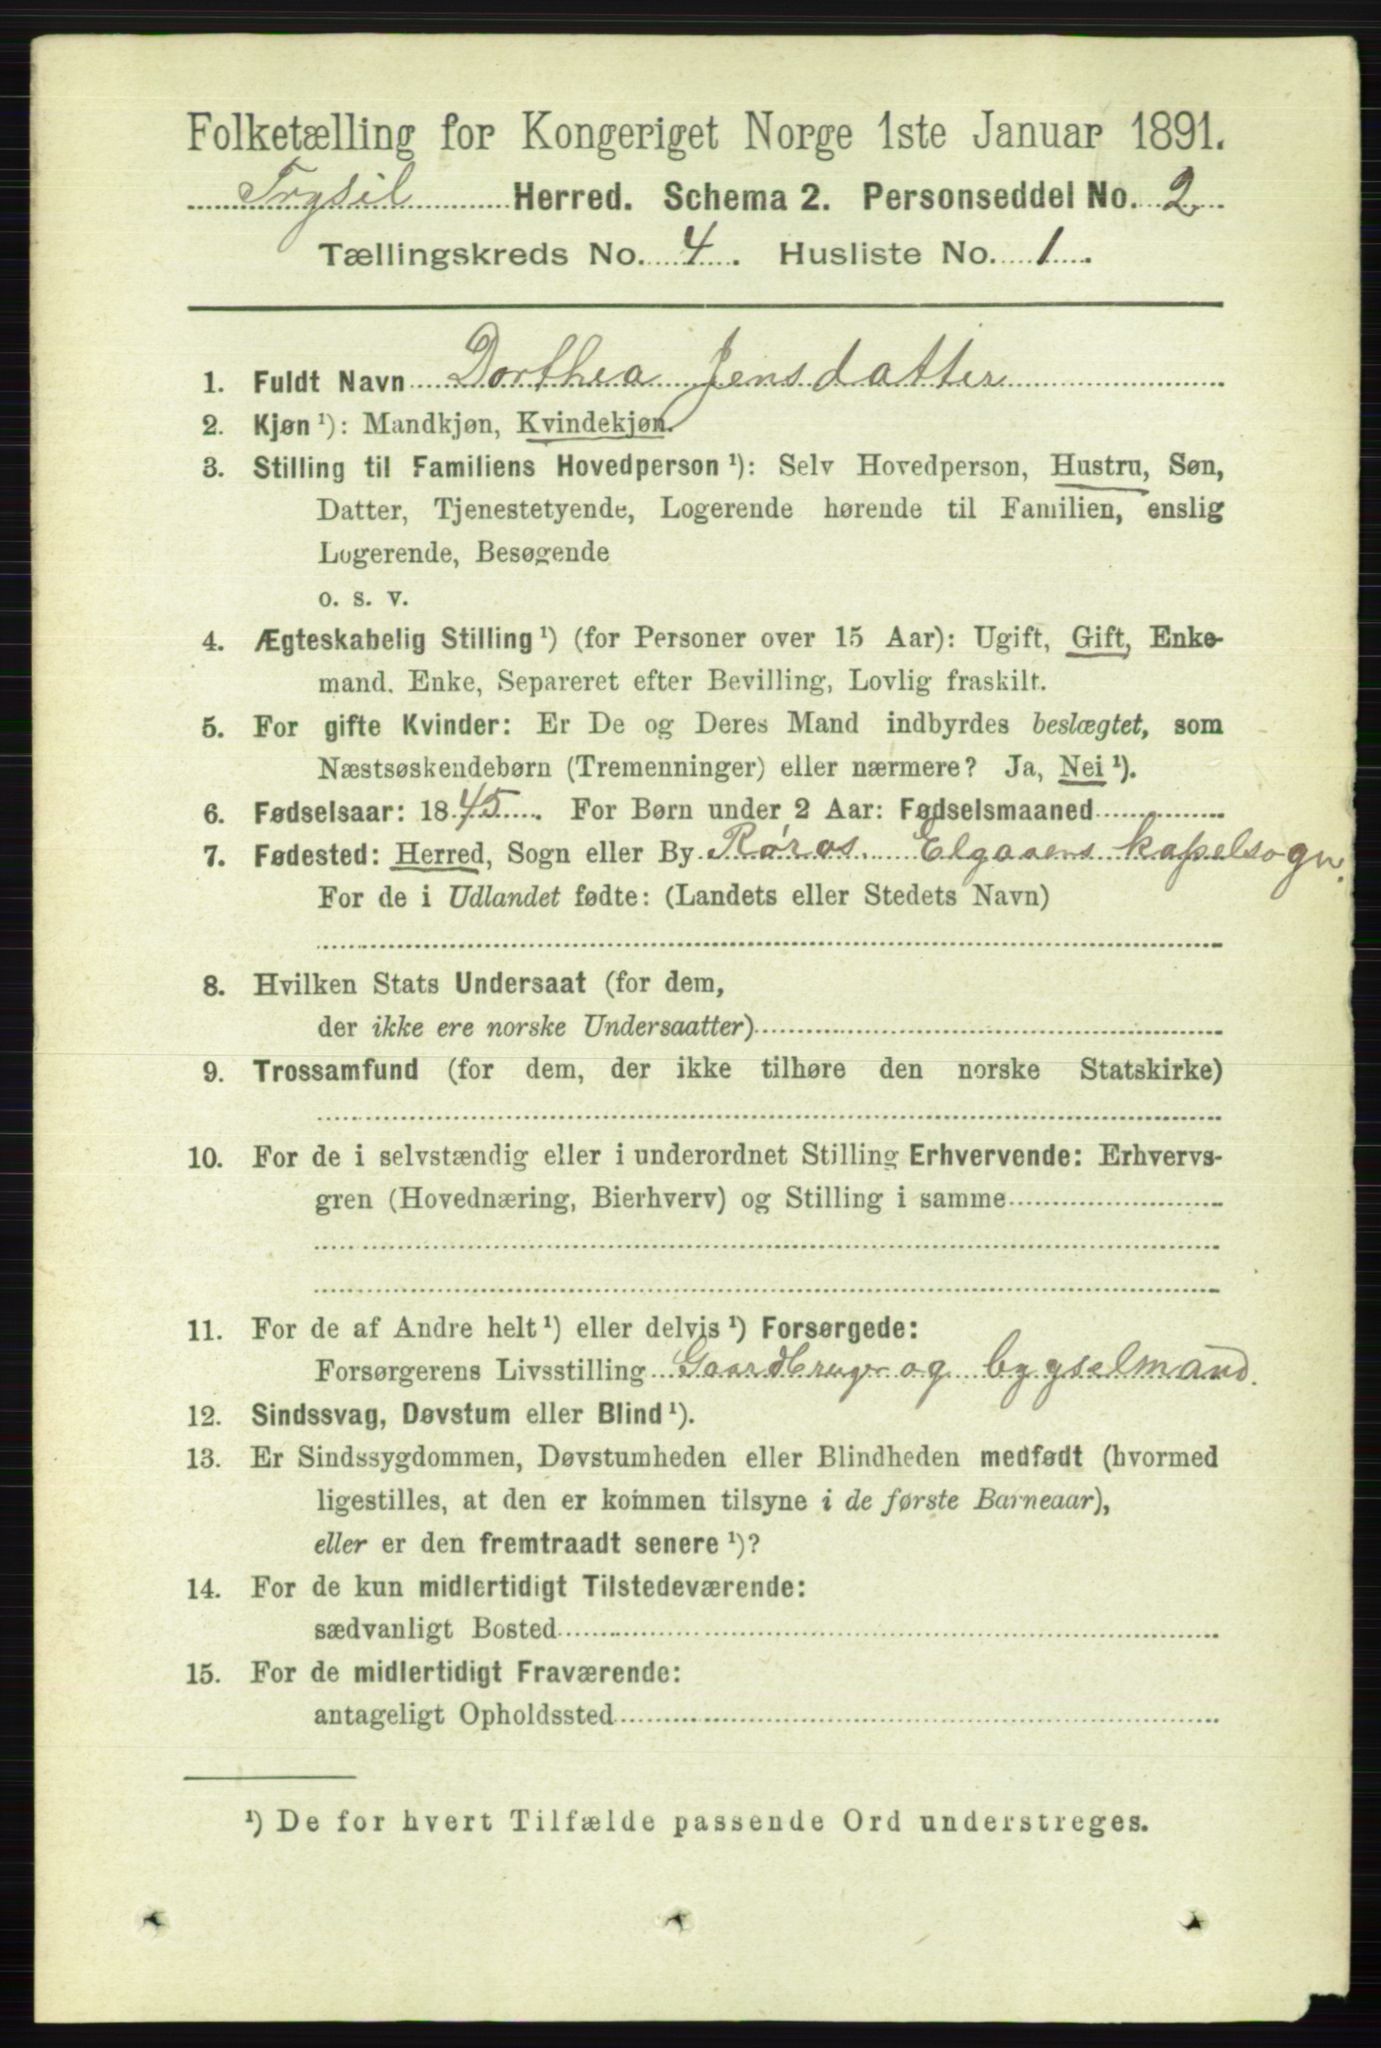 Folketælling for Kongeriget Norge 1ste Januar 1891.
Trysil Herred. Schema 2. Personseddel No. 2
Tællingskreds No. 4. Husliste No. 1.
1. Fuldt Navn Dorthea Jensdatter
2. Kjøn ¹): Mandkjøn, Kvindekjøn.
3. Stilling til Familiens Hovedperson ¹): Selv Hovedperson, Hustru, Søn,
Datter, Tjenestetyende, Logerende hørende til Familien, enslig
Logerende, Besøgende
o. s. v.
4. Ægteskabelig Stilling ¹) (for Personer over 15 Aar): Ugift, Gift, Enke-
mand, Enke, Separeret efter Bevilling, Lovlig fraskilt.
5. For gifte Kvinder: Er De og Deres Mand indbyrdes beslægtet, som
Næstsøskendebørn (Tremenninger) eller nærmere? Ja, Nei ¹).
6. Fødselsaar: 1845. For Børn under 2 Aar: Fødselsmaaned
7. Fødested: Herred, Sogn eller By Røros. Elgaaens kapelsogn.
For de i Udlandet fødte: (Landets eller Stedets Navn)
8. Hvilken Stats Undersaat (for dem,
der ikke ere norske Undersaatter)
9. Trossamfund (for dem, der ikke tilhøre den norske Statskirke)
10. For de i selvstændig eller i underordnet Stilling Erhvervende: Erhvervs-
gren (Hovednæring, Bierhverv) og Stilling i samme
11. For de af Andre helt ¹) eller delvis ¹) Forsørgede:
Forsørgerens Livsstilling Gaardbruger og bygselmand.
12. Sindssvag, Døvstum eller Blind ¹).
13. Er Sindssygdommen, Døvstumheden eller Blindheden medfødt (hvormed
ligestilles, at den er kommen tilsyne i de første Barneaar),
eller er den fremtraadt senere ¹)?
14. For de kun midlertidigt Tilstedeværende:
sædvanligt Bosted
15. For de midlertidigt Fraværende:
antageligt Opholdssted
¹) De for hvert Tilfælde passende Ord understreges.